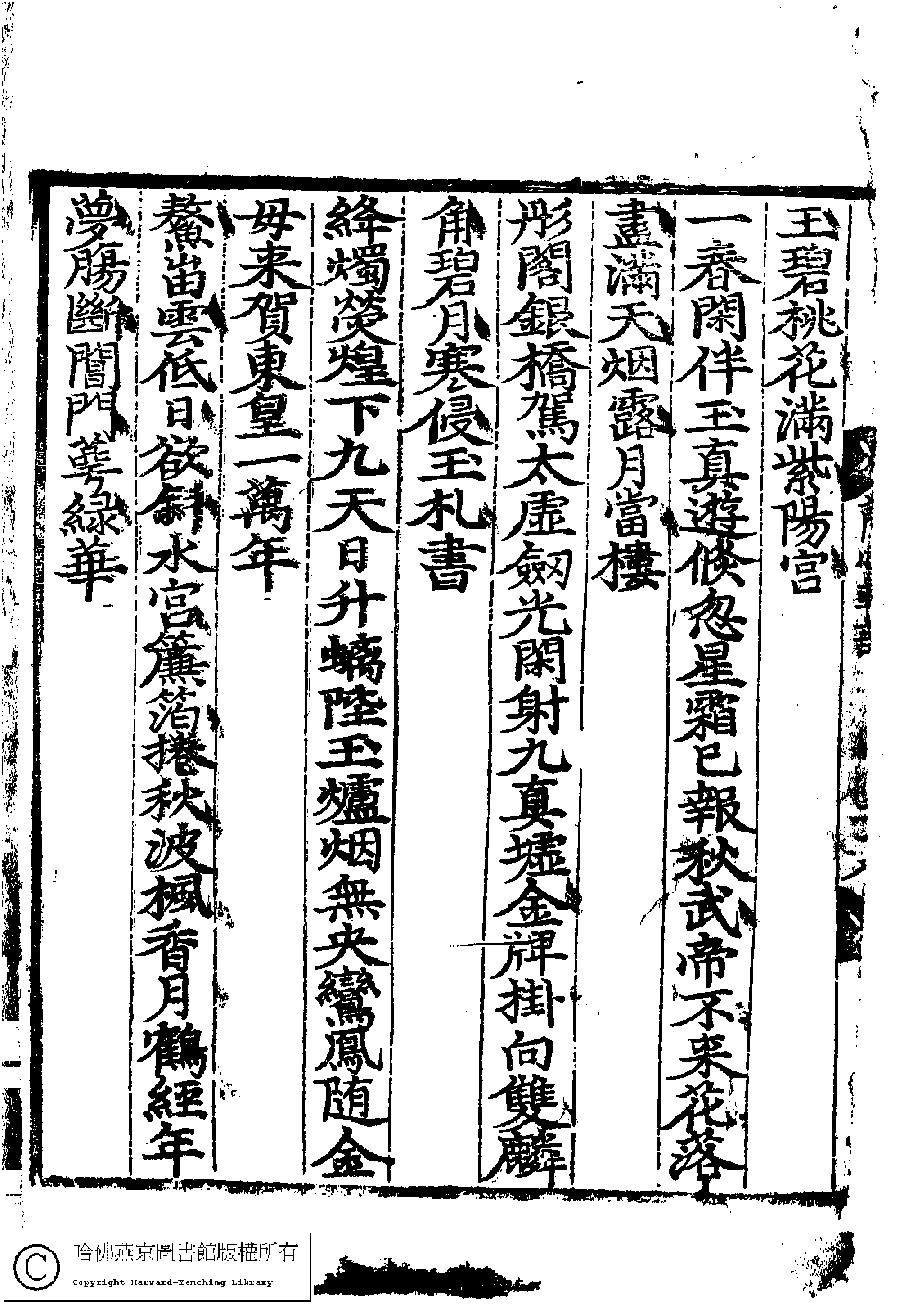 王碧桃花滿紫陽宫
一春閑伴玉真遊倐忽星霜已報秋武帝不来花落
盡滿天烟露月當樓
彤閣銀橋駕太虛劔光閑射九真墟金牌掛向雙麟
角碧月寒侵玉札書
絳燭熒煌下九天日升螭陛玉爐烟無央鸞鳳随金
母来賀東皇一萬年
鰲岫雲低日欲斜水宫簾箔捲秋波楓香月鶴經年
夢膓斷閶門蕚綠華
哈佛燕京圖書館版權所有
Copyright Harvard-Yenching Library